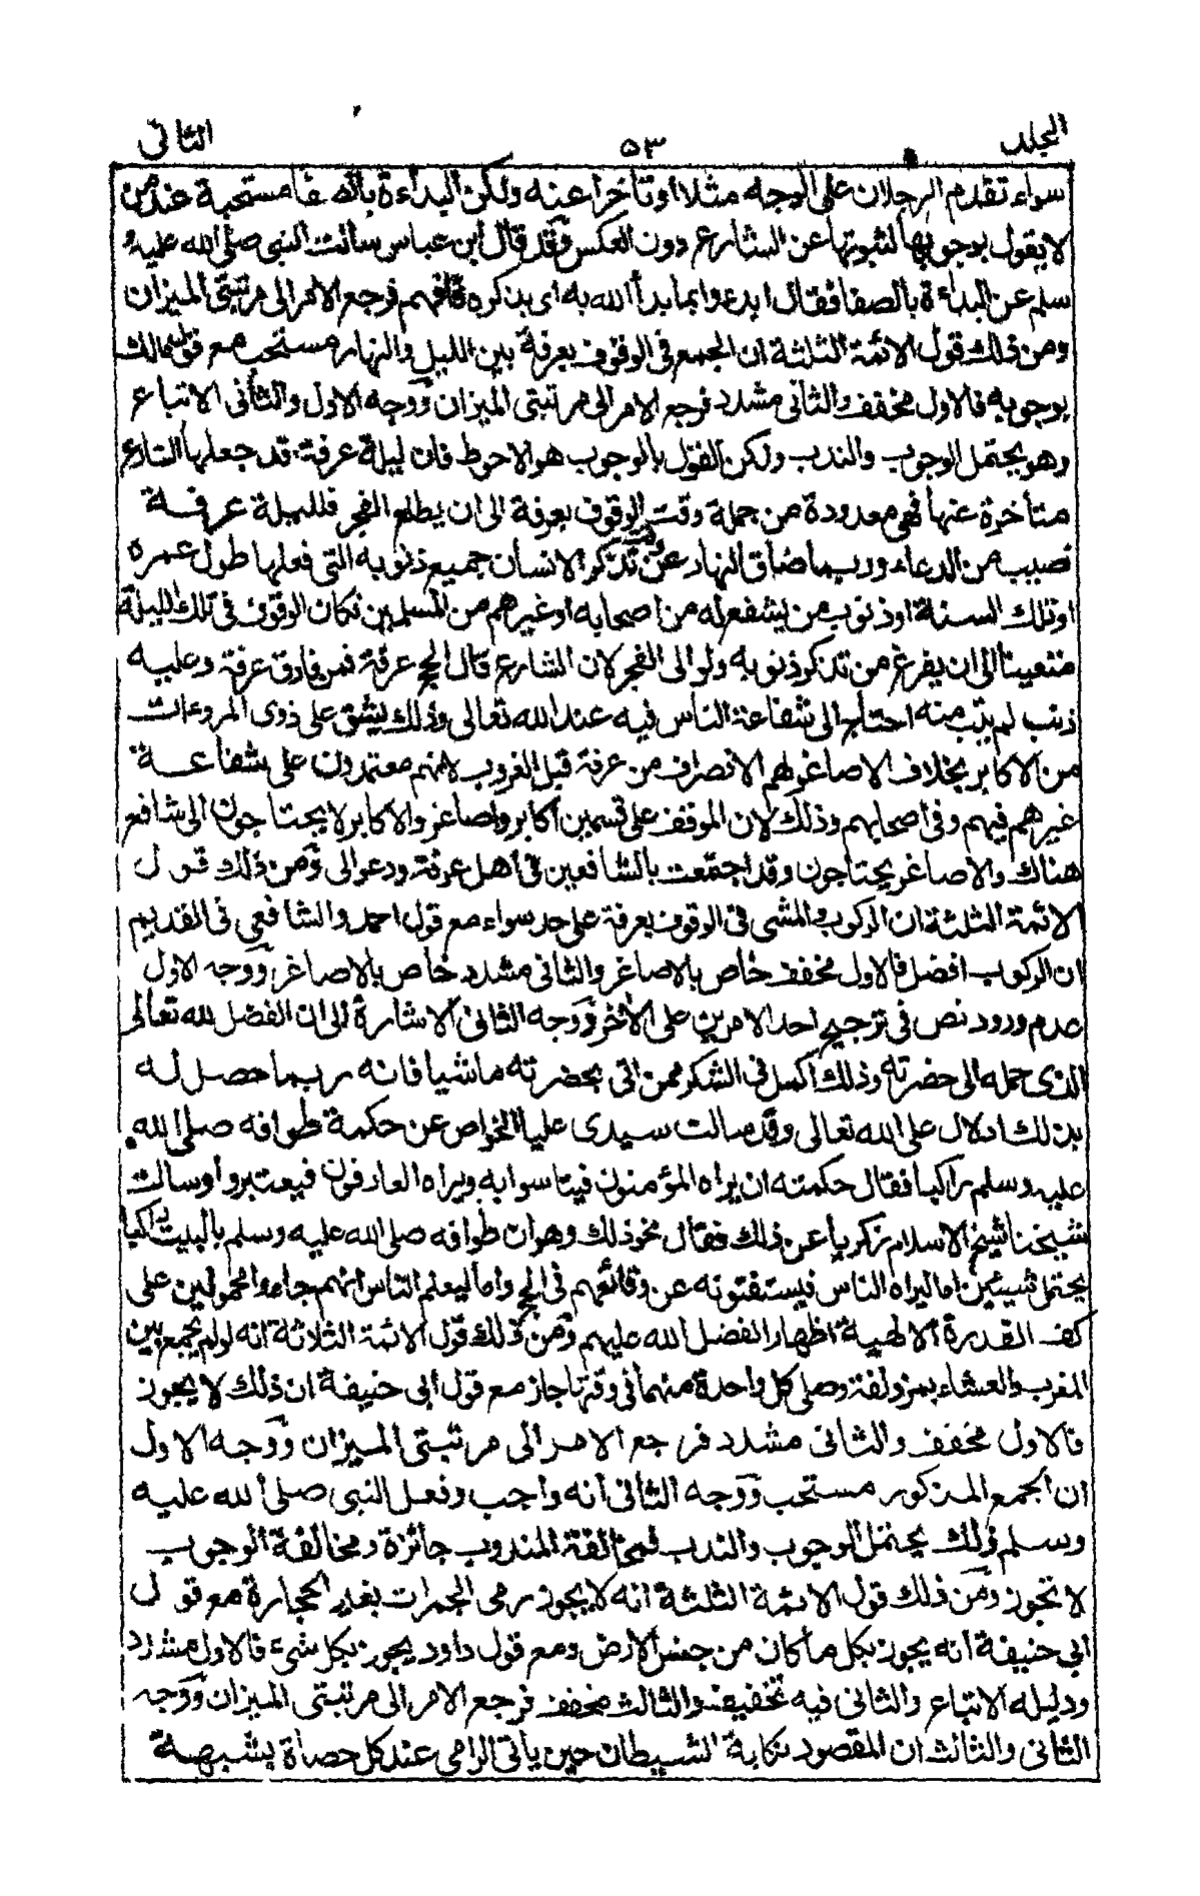 المجلد ٥٣ الثاني
سواء تقدم الرجلان على الوجه مثلا او تأخرا عنه ولكن البداءة بالصفا مستحبة عند من
لا يقول بوجوبها لثبوتها عن الشارع دون العكس وقد قال ابن عباس سألت النبى صلى الله عليه و
سلم عن البداءة بالصفا فقال ابدءوا بما بدأ الله به اى بذكره فافهم فرجع الامر الى مرتبتى الميزان
ومن ذلك قول الائمة الثلثة ان الجمع فى الوقوف بعرفة بين الليل والنهار مستحب مع قول مالك
بوجوبه فالاول مخفف والثانى مشدد فرجع الامر الى مرتبتى الميزان ووجه الاول والثانى الاتباع
وهو يحتمل الوجوب والندب ولكن القول بالوجوب هو الاحوط فان ليلة عرفة قد جعلها الشارع
متأخرة عنها فهى معدودة من جملة وقت الوقوف بعرفة الى ان يطلع الفجر فلليلة عرفة
نصيب من الدعاء وربما ضاق النهار عن تذكر الانسان جميع ذنوبه التى فعلها طول عمره
او تلك السنة او ذنوب من يشفع له من اصحابه او غيرهم من المسلمين فكان الوقوف فى تلك الليلة
متعينا الى ان يفرغ من تذكر ذنوبه ولو الى الفجر لان الشارع قال الحج عرفة فمن فارق عرفة وعليه
ذنب لم يتب منه احتاج الى شفاعة الناس فيه عند الله تعالى وذلك يشق على ذوى المروءات
من الاكابر بخلاف الاصاغر لهم الانصراف من عرفة قبل الغروب لانهم معتمدون على شفاعة
غيرهم فيهم وفى اصحابهم وذلك لان الموقف على قسمين اكابر واصاغر والاكابر لا يحتاجون الى شافع
هناك والاصاغر يحتاجون وقد اجتمعت بالشافعين فى أهل عرفة ودعوا لى ومن ذلك قول
الائمة الثلثة ان الركوب والمشى فى الوقوف بعرفة على حد سواء مع قول احمد والشافعى فى القديم
ان الركوب افضل فالاول مخفف خاص بالاصاغر والثانى مشدد خاص بالاصاغر ووجه الاول
عدم ورود نص فى ترجيح احد الامرين على الآخر ووجه الثانى الاشارة الى ان الفضل لله تعالى
الذى حمله الى حضرته وذلك اكمل فى الشكر ممن اتى بحضرته ماشيا فانه ربما حصل له
بذلك ادلال على الله تعالى وقد سالت سيدى عليا الخواص عن حكمة طوافه صلى الله
عليه وسلم راكبا فقال حكمته ان يراه المؤمنون فيتاسوا به ويراه العارفون فيعتبروا وسالت
شيخنا شيخ الاسلام زكريا عن ذلك فقال نحو ذلك وهو ان طوافه صلى الله عليه وسلم بالبيت راكبا
يحتمل شيئين اما ليراه الناس فيستفتونه عن وقائعهم فى الحج واما ليعلم الناس انهم جاءوا محمولين على
كف القدرة الالهية اظهار الفضل الله عليهم ومن ذلك قول الائمة الثلاثة انه لو لم يجمع بين
المغرب والعشاء بمزدلفة وصلى كل واحدة منهما فى وقتها جاز مع قول ابى حنيفة ان ذلك لا يجوز
فالاول مخفف والثانى مشدد فرجع الامر الى مرتبتى الميزان ووجه الاول
ان الجمع المذكور مستحب ووجه الثانى أنه واجب وفعل النبى صلى الله عليه
وسلم ذلك يحتمل الوجوب والندب فمخالفة المندوب جائزة ومخالفة الوجوب
لا تجوز ومن ذلك قول الائمة الثلثة انه لا يجوز رمى الجمرات بغير الحجارة مع قول
ابى حنيفة انه يجوز بكل ما كان من جنس الارض ومع قول داود يجوز بكل شىء فالاول مشدد
ودليله الاتباع والثانى فيه تخفيف والثالث مخفف فرجع الامر الى مرتبتى الميزان ووجه
الثانى والثالث ان المقصود نكاية الشيطان حين ياتى الرامى عند كل حصاة بشبهة